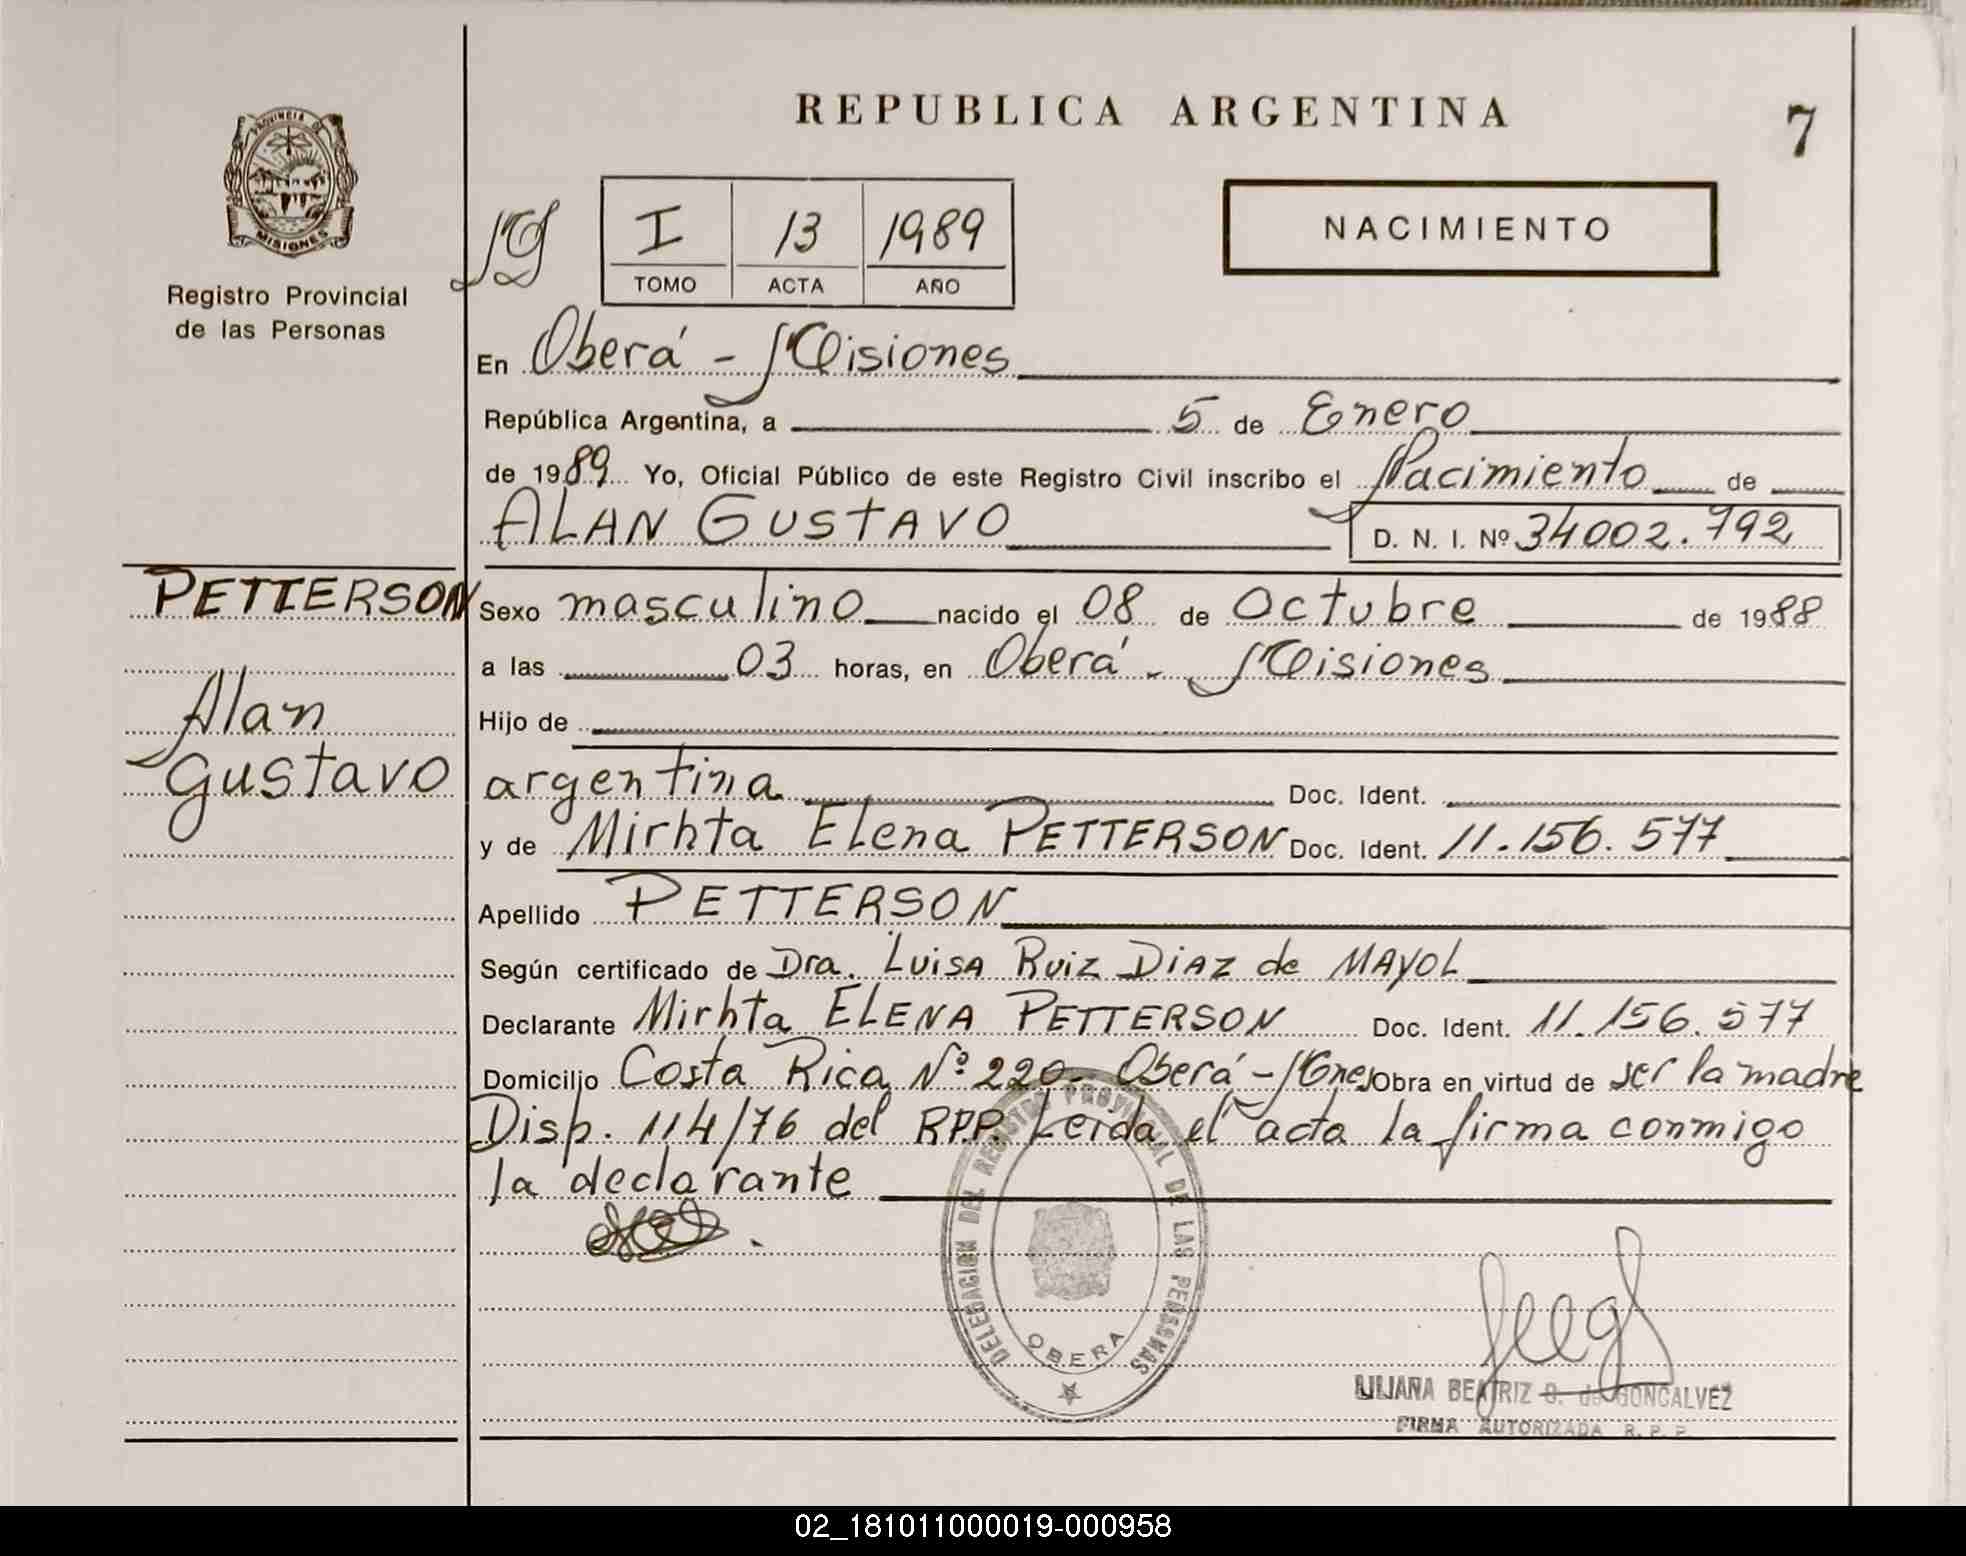 REPUBLICA ARGENTINA
7
PROVINCIA DE
MISIONES
Registro Provincial
de las Personas
I 13 1989
TOMO ACTA AÑO
NACIMIENTO
En Oberá - Misiones
República Argentina, a 5 de Enero
de 1989 Yo, Oficial Público de este Registro Civil inscribo el Nacimiento de
ALAN GUSTAVO D. N. I. Nº 34002.792
PETTERSON
Alan
Gustavo
Sexo masculino nacido el 08 de Octubre de 1988
a las 03 horas, en Oberá - Misiones
Hijo de
argentina Doc. Ident.
y de Mirhta Elena PETTERSON Doc. Ident. 11.156.577
Apellido PETTERSON
Según certificado de Dra. Luisa Ruiz Diaz de MAYOL
Declarante Mirhta ELENA PETTERSON Doc. Ident. 11.156.577
Domicilio Costa Rica Nº 220- Oberá - Mnes Obra en virtud de ser la madre
Disp. 114/76 del RPP. Leida el acta la firma conmigo
la declarante
DELEGACION DEL REGISTRO PROVINCIAL DE LAS PERSONAS
OBERA
LILIANA BEATRIZ G. de GONCALVEZ
FIRMA AUTORIZADA R. P. P.
02_181011000019-000958